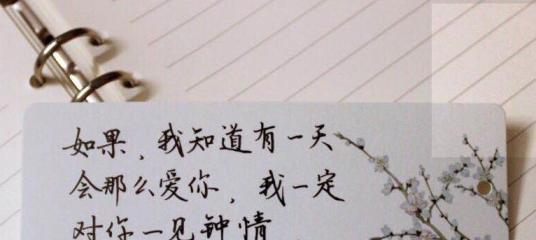 如果，我知道有一天
会那么爱你，我一定
对你一见钟情